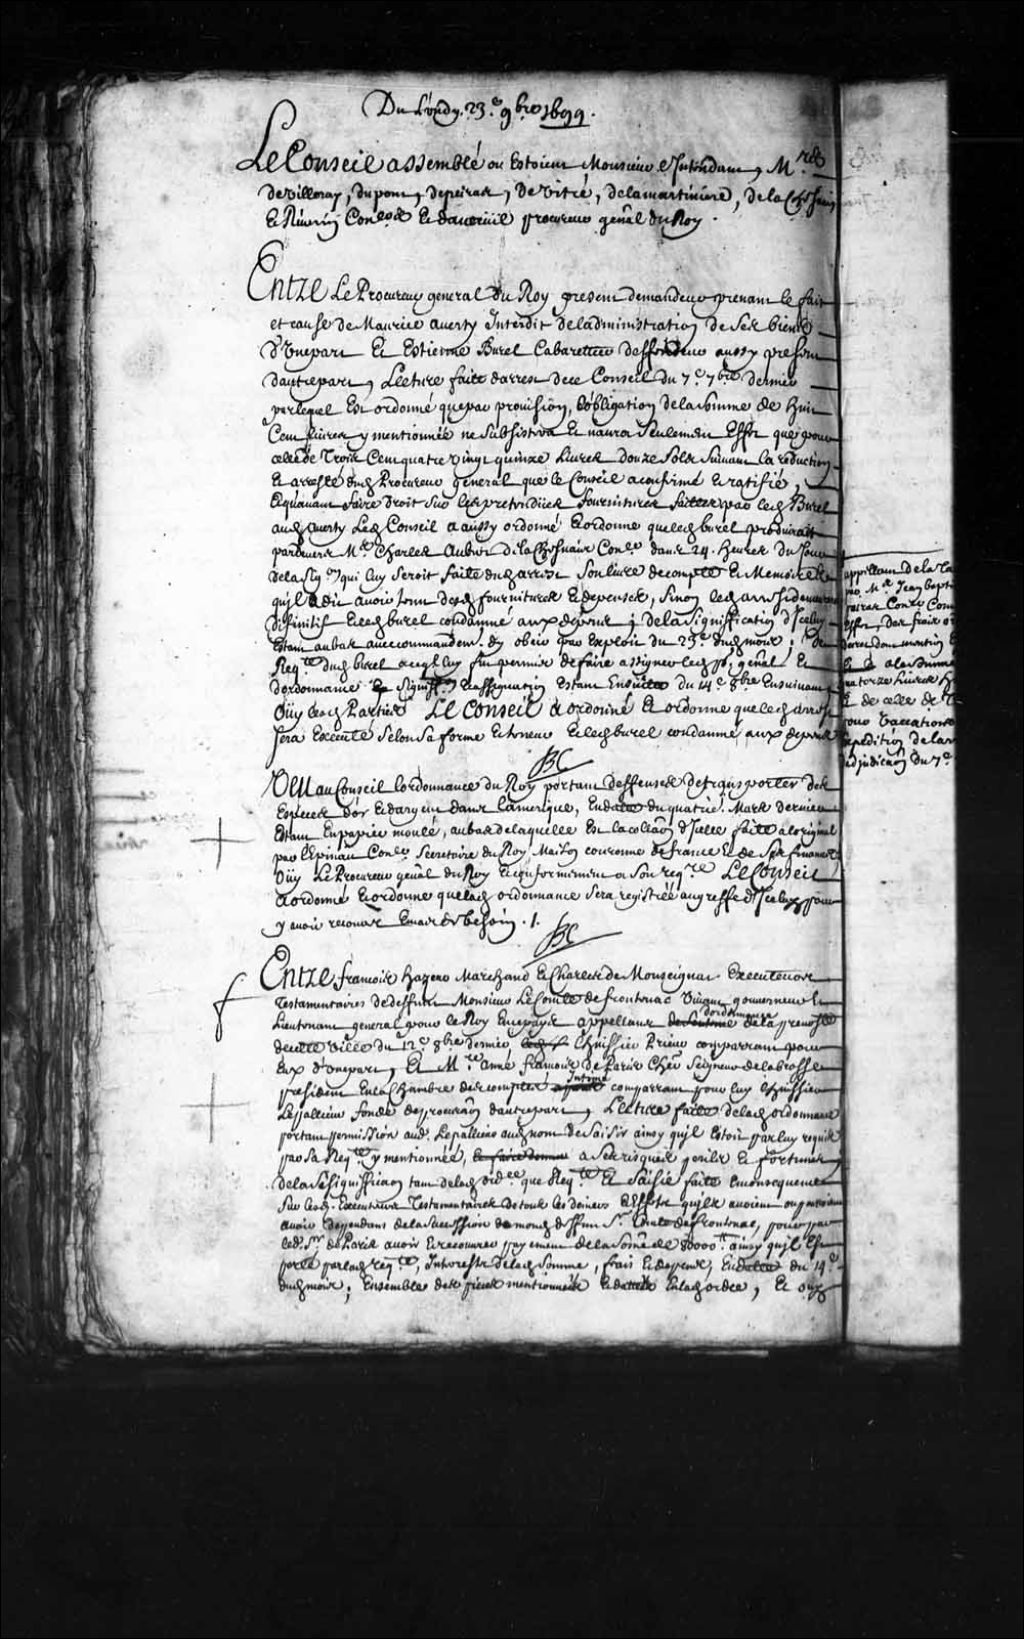 Du Lundy 23.e 9.bre 1699.
Le Conseil assemblé ou Estoient Monsieur L'Intendant, M.rs
de villeray, dupont, depeiras, de vitré, de la martiniere, de la Chesnaie
Et Riverin Con.ers Et dauteuil procureur gnâl du Roy.
Entre Le Procureur general du Roy present demandeur prenant le fait
et cause de Maurice averty Interdit de ladministration de Ses biens
d'Vnepart Et Estienne Burel Cabaretier deffendeur aussy present
dautrepart, Lecture faite darrest dece Conseil du 7.e 7.bre dernier
parlequel Est ordonné que par provision, Lobligation de la Somme de huit
Cent Livres y mentionnée ne Subsistera Et naura Seulement Effet que pour
celle de Trois Cent quatre vingt quinze Livres douze Sols Suivant la reduction
Et arresté dud Procureur general que le Conseil a confirmé Et ratifié,
Et quavant faire droit Sur les pretenduës fournitures faites par led Burel
aud averty Led Conseil a aussy ordonné Et ordonne que led burel produirait
pardevers M.e Charles Aubert de la Chesnaie Con.er dans 24. heures du Jour
de la Sig.on qui luy Seroit faite dud arrest Son livre de compte Et Memoire
qu'jl a dit avoir tenu desd fournitures Et depenses, Sinon led arrest demeureroit
difinitif Et led burel condamné aux depens; de la Signification d'Jceluy
Estant aubas avec commandem.t dy obeir par Exploit du 23.e dud mois;
Req.te dud burel a ce qu'il luy fut permis de faire assigner led p.r gnâl Et
dordonnance Signiff.on Et assignation Estant Ensuite du 14.e 8.bre Ensuivant,
Oüy lesd Parties Le Conseil a ordonné Et ordonne que led arrest
Sera Executé Selon Sa forme Et teneur Et led burel condamné aux depens
BC
Veu au Conseil Lordonnance du Roy portant deffenses de transporter des
Especes d'or Et dargent dans Lamerique, En datte du quatrie. Mars dernier
Estant En papier moulé, aubas de laquelle Est la colla.on d'Jcelle faite a loriginal
par Lepinau Con.er Secretaire du Roy, Maison couronne de france Et de Ses finances
Oüy Le Procureur gnâl du Roy Et conformement a Son req.re Le Conseil
a ordonné Et ordonne que lad ordonnance Sera registrée au greffe d'Jceluy pour
y avoir recours En cas de besoin . /.
BC
Entre francois hazeur Marchand Et Charles de Monseignat Executeurs
Testamentaires de deffunt Monsieur Le Comte de frontenac vivant gouverneur Et
Lieutenant general pour le Roy En ce pays appellans de Sentence dordonnance de la prevosté
de cette ville du 12.e 8.bre dernier Lhuissier Prieur comparant pour
Eux d'Vnepart, Et M.re anne francois de Paris Cher Seigneur de la brosse
president En la Chambre des comptes Intimé comparant pour luy Lhuissier
Lepallieur fondé de procura.on dautrepart, Lecture faite de lad ordonnance
portant permission aud. Lepallieur aud nom de Saisir ainsy qu'jl Estoit par luy requis
par Sa Req.te y mentionnée, a Ses risques perils Et fortunes,
de la Signiffica.on tant de lad ord.ce que Req.te Et Saisie faite En consequence
Sur lesd. Executeurs Testamentaires de tous les deniers Et Effets qu'jls avoient ou pouroient
avoir dependans de la Succession de mond deffunt S.r Comte de frontenac, pour par
led. S.r de Paris avoir Et recouvrer payement de la Some de 80000.tt ainsy qu'jl Est
porté par lad req.te, Interests de lad Somme, frais Et depens, En datte du 14.e
dud mois; Ensemble des pieces mentionnées Et dattés En lad ordce, Et ouy
appellant de la
par M.r Jean bapt
peiras Con.er Com
Effet, des frais
quatorze Livres
Et de celle de
pour Vaccations
Expedition de la
adjudica.on du 7.e